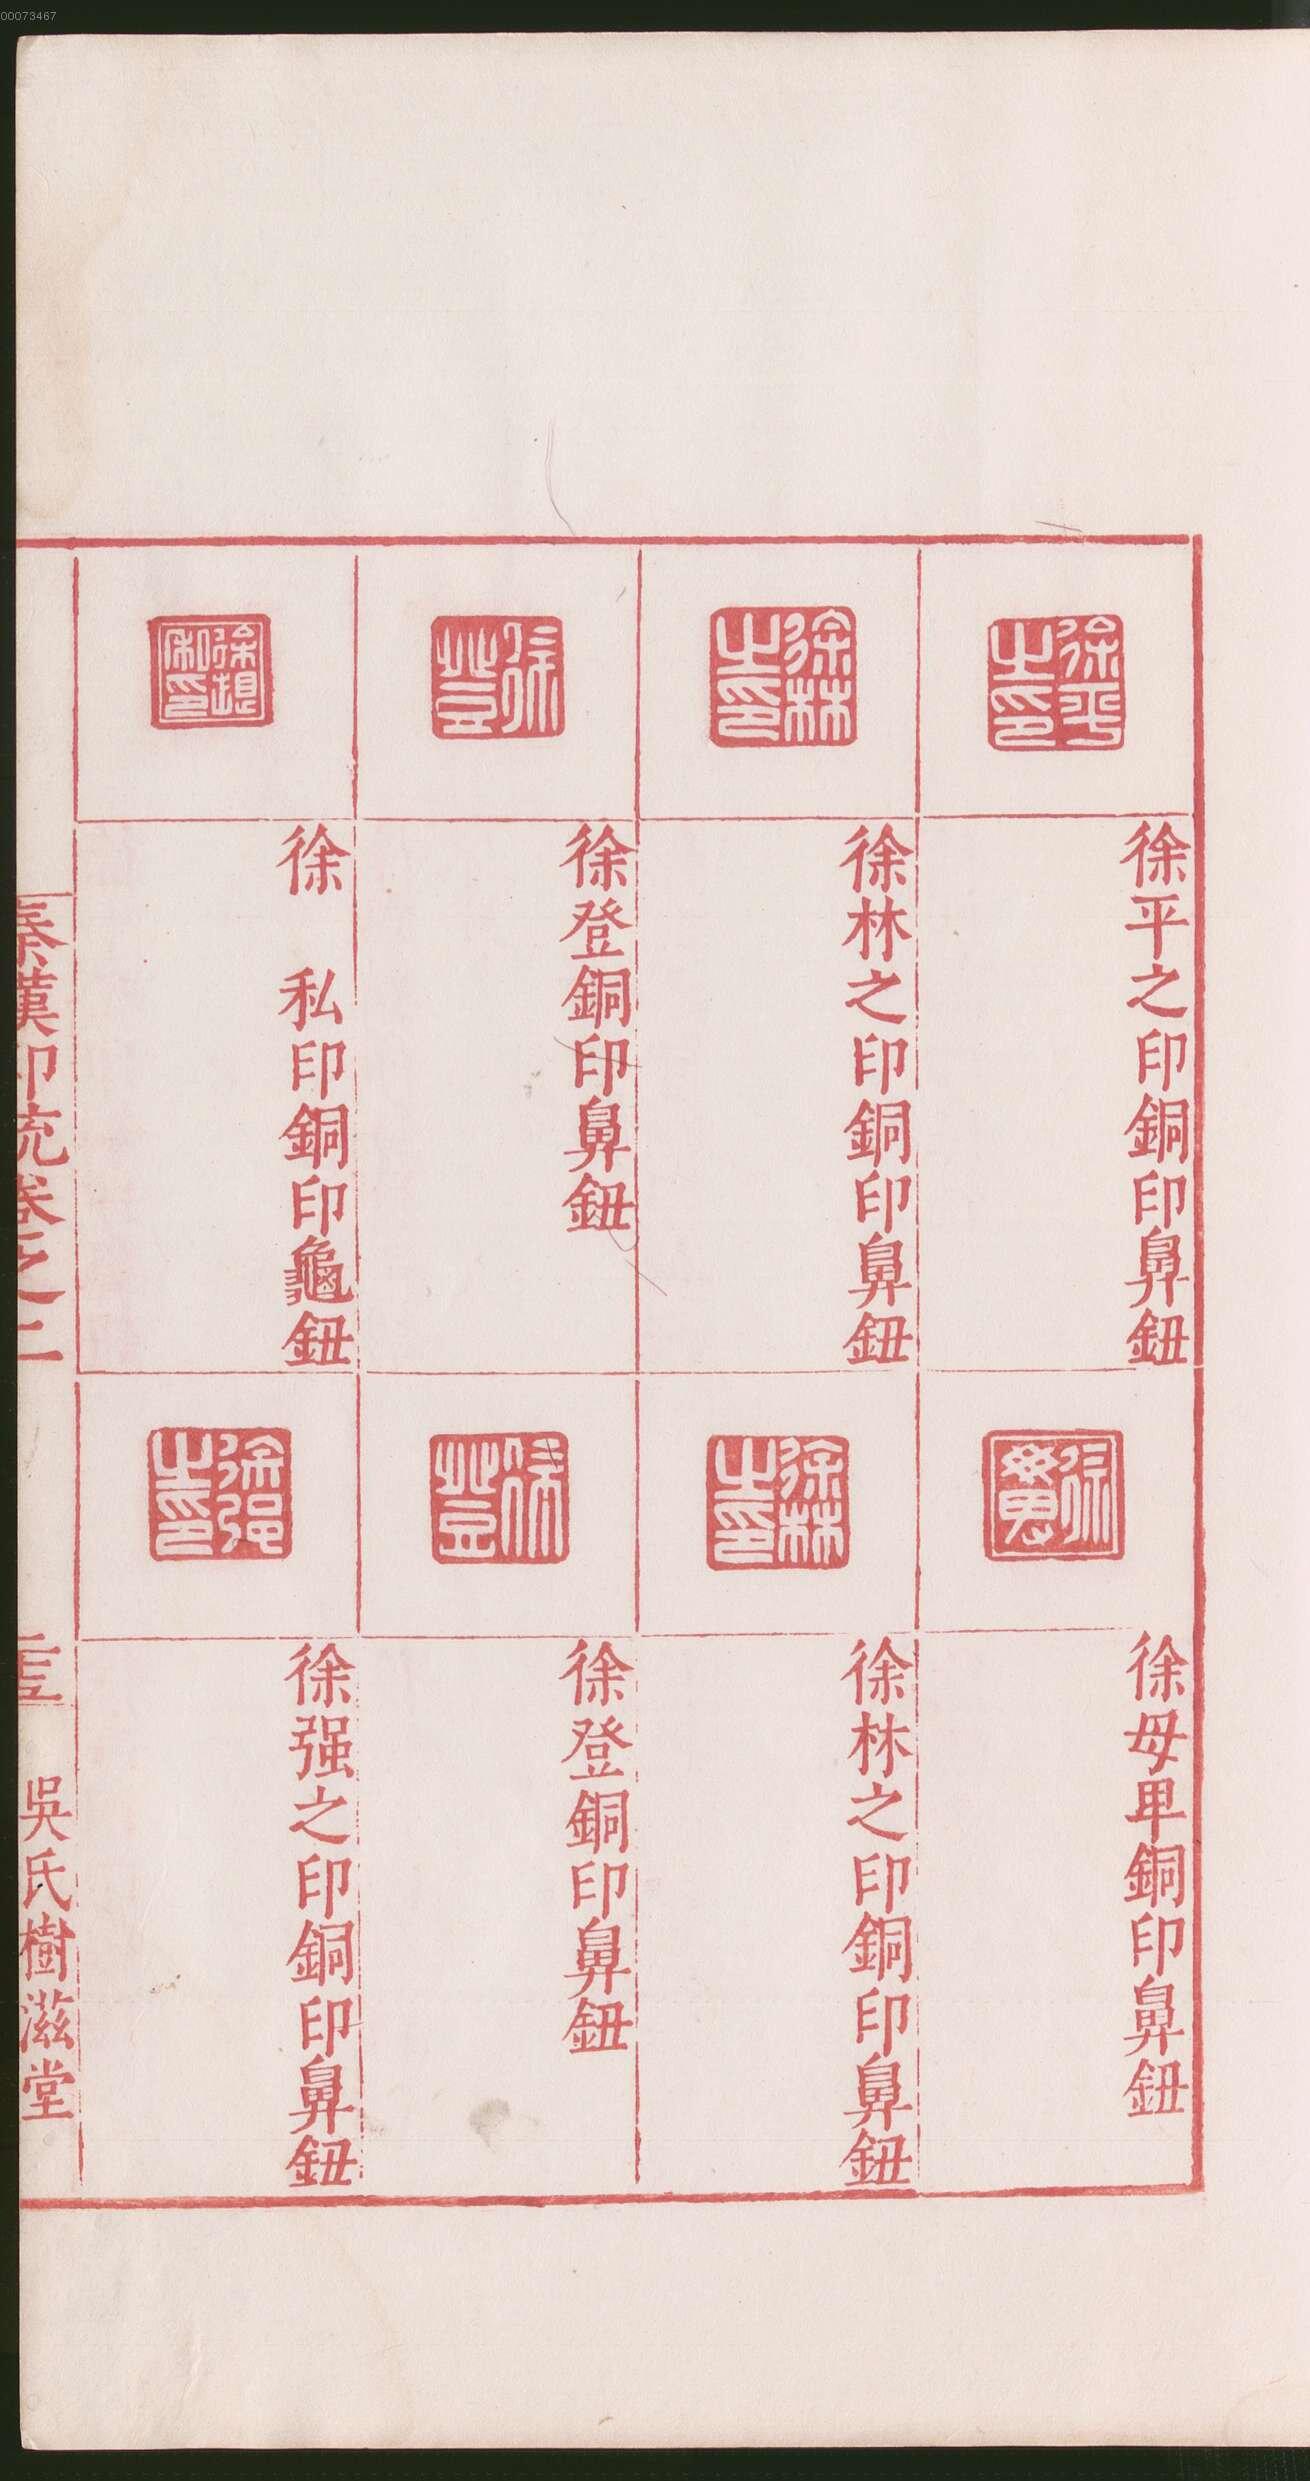 00073467
徐平之印
徐平之印銅印鼻鈕
徐林之印
徐林之印銅印鼻鈕
徐登
徐登銅印鼻鈕
私印
徐　私印銅印龜鈕
徐
徐母甲銅印鼻鈕
徐林之印
徐林之印銅印鼻鈕
徐登
徐登銅印鼻鈕
徐强之印
徐强之印銅印鼻鈕
秦漢印統卷之二
吳氏樹滋堂